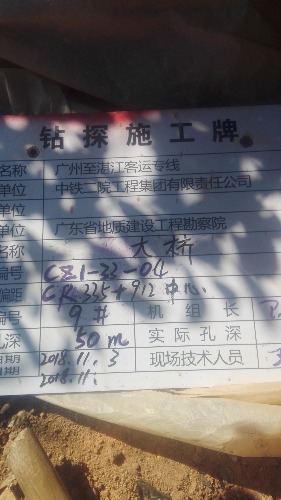 钻探施工牌
名称 广州至湛江客运专线
单位 中铁二院工程集团有限责任公司
单位 广东省地质建设工程勘察院
名称 大桥
编号 CZ1-32-04
偏距 CK335+912 中心
编号 9# 机组长
孔深 50m 实际孔深
日期 2018.11.3 现场技术人员
日期 2018.11.